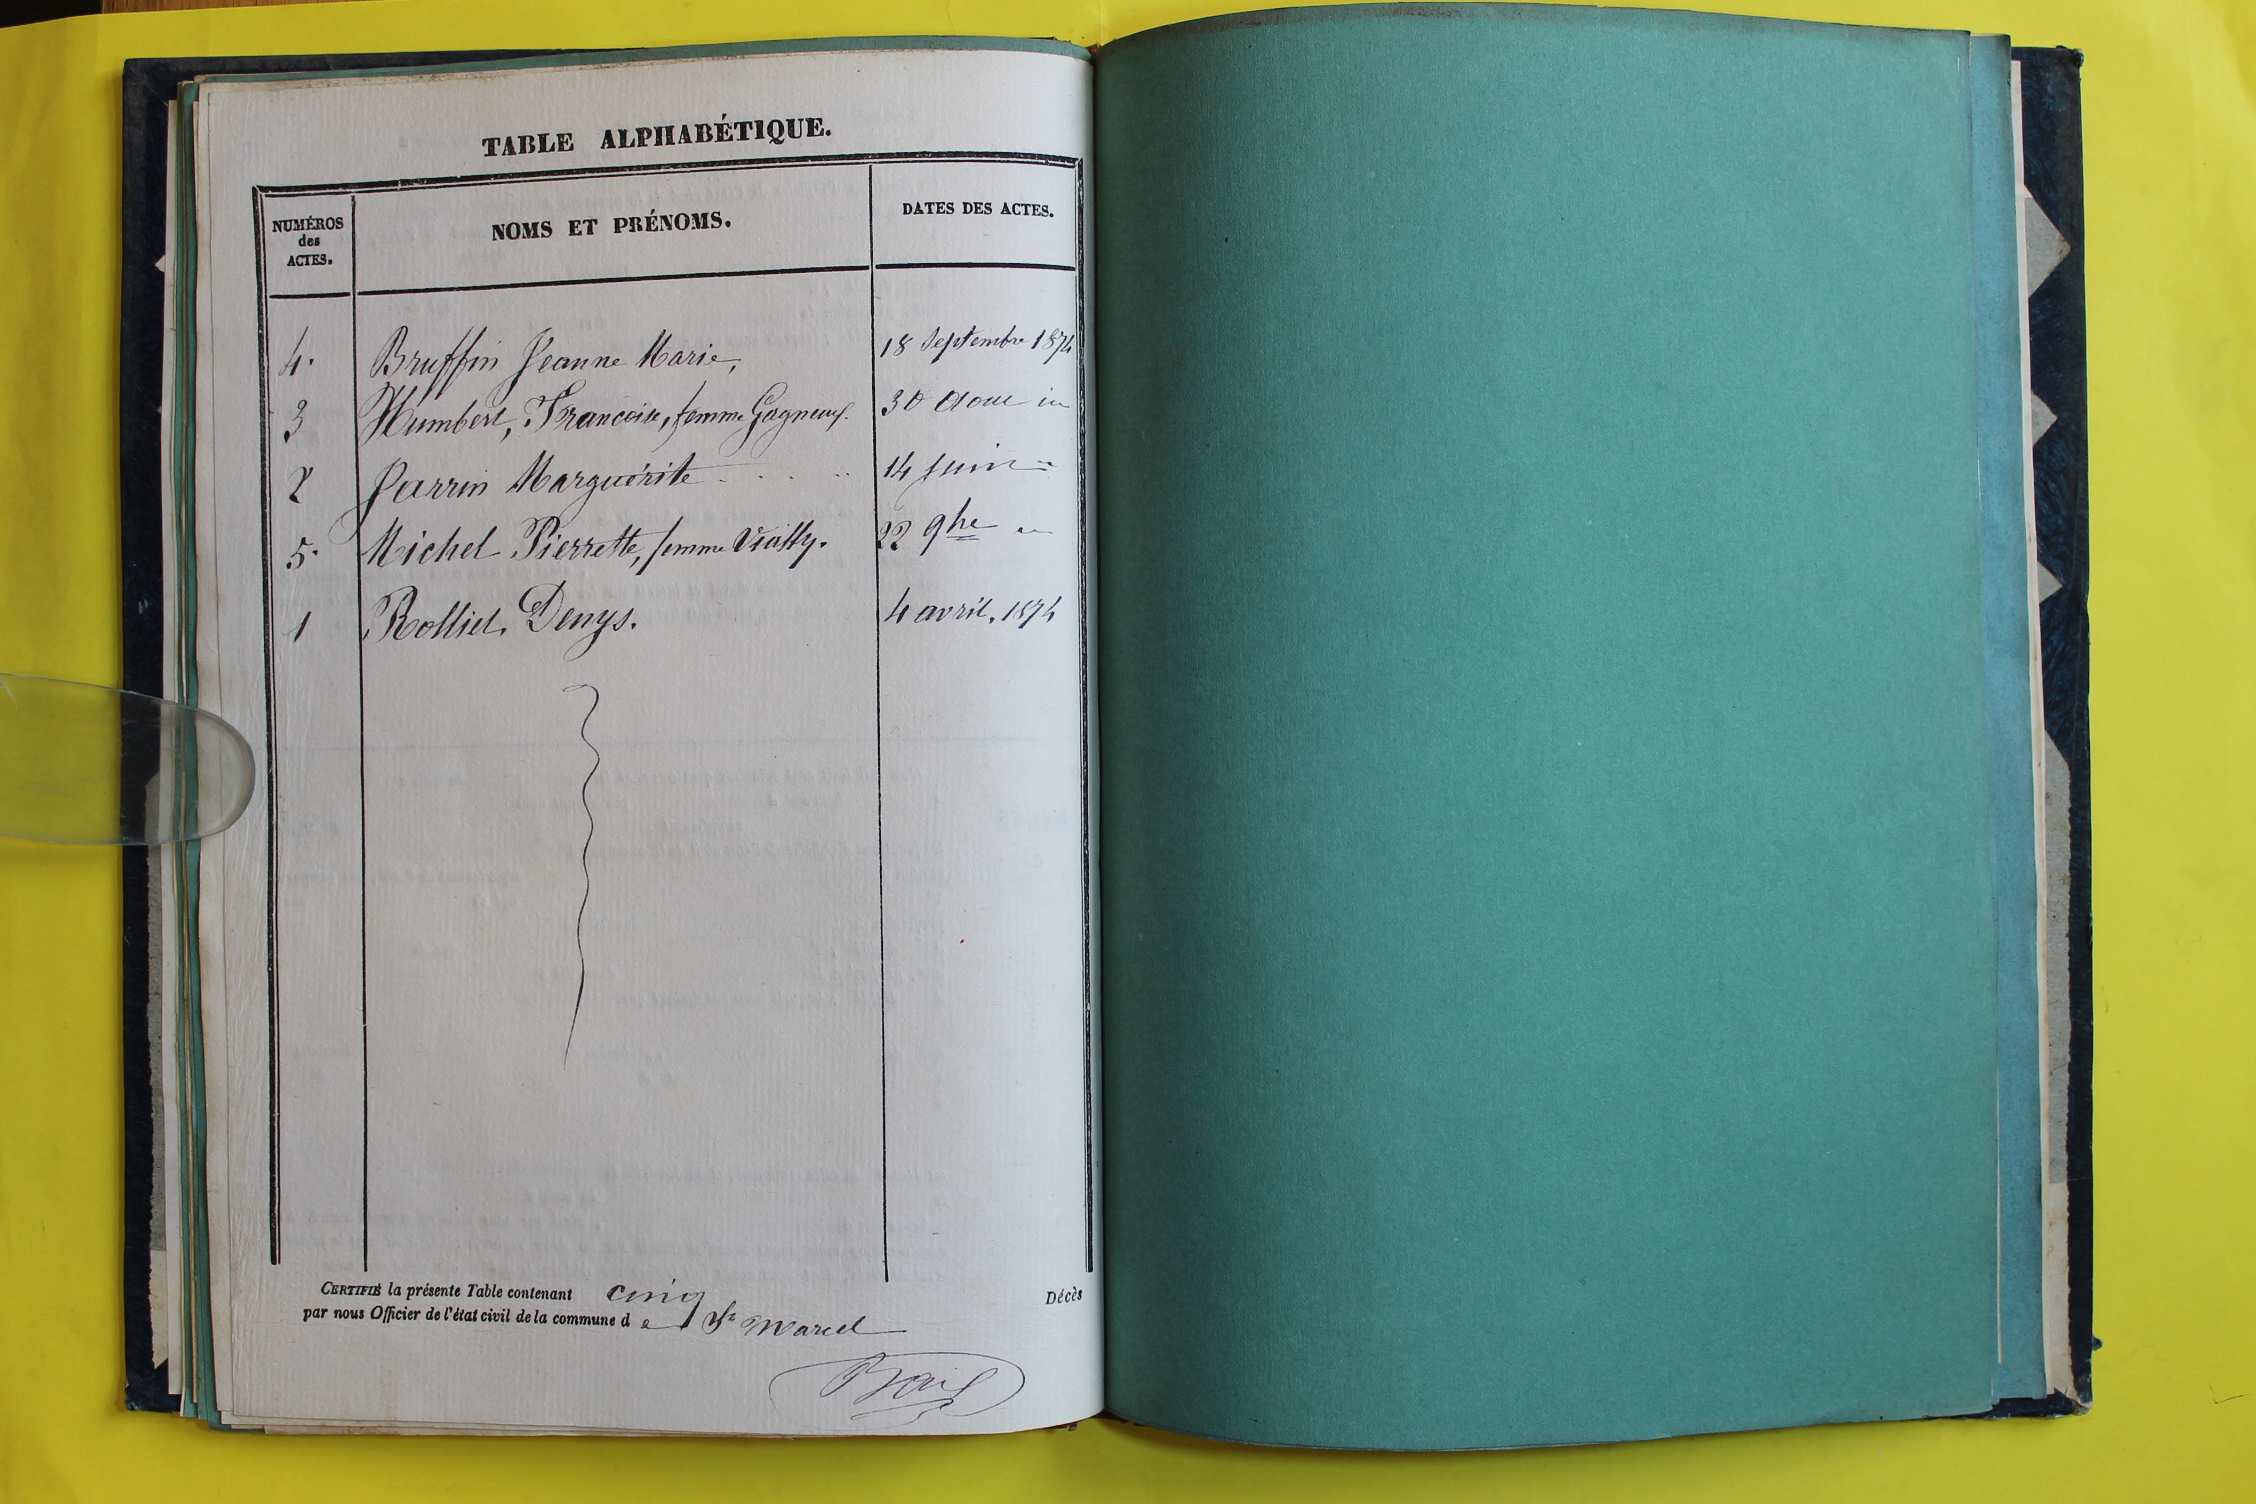 TABLE ALPHABÉTIQUE.
NUMÉROS
des
ACTES.
NOMS ET PRÉNOMS.
DATES DES ACTES.
4. Bruffin Jeanne Marie, 18 Septembre 1874
3 Humbert, Francoise, femme Gagneux. 30 Aout id
2 Parrin Marguérite 14 Juin
5. Michel Pierrette, femme Vially. 22 9bre
1 Rolliet. Denys. 4 avril. 1874
CERTIFIÉ la présente Table contenant cinq Décès
par nous Officier de l'état civil de la commune d e St Marcel